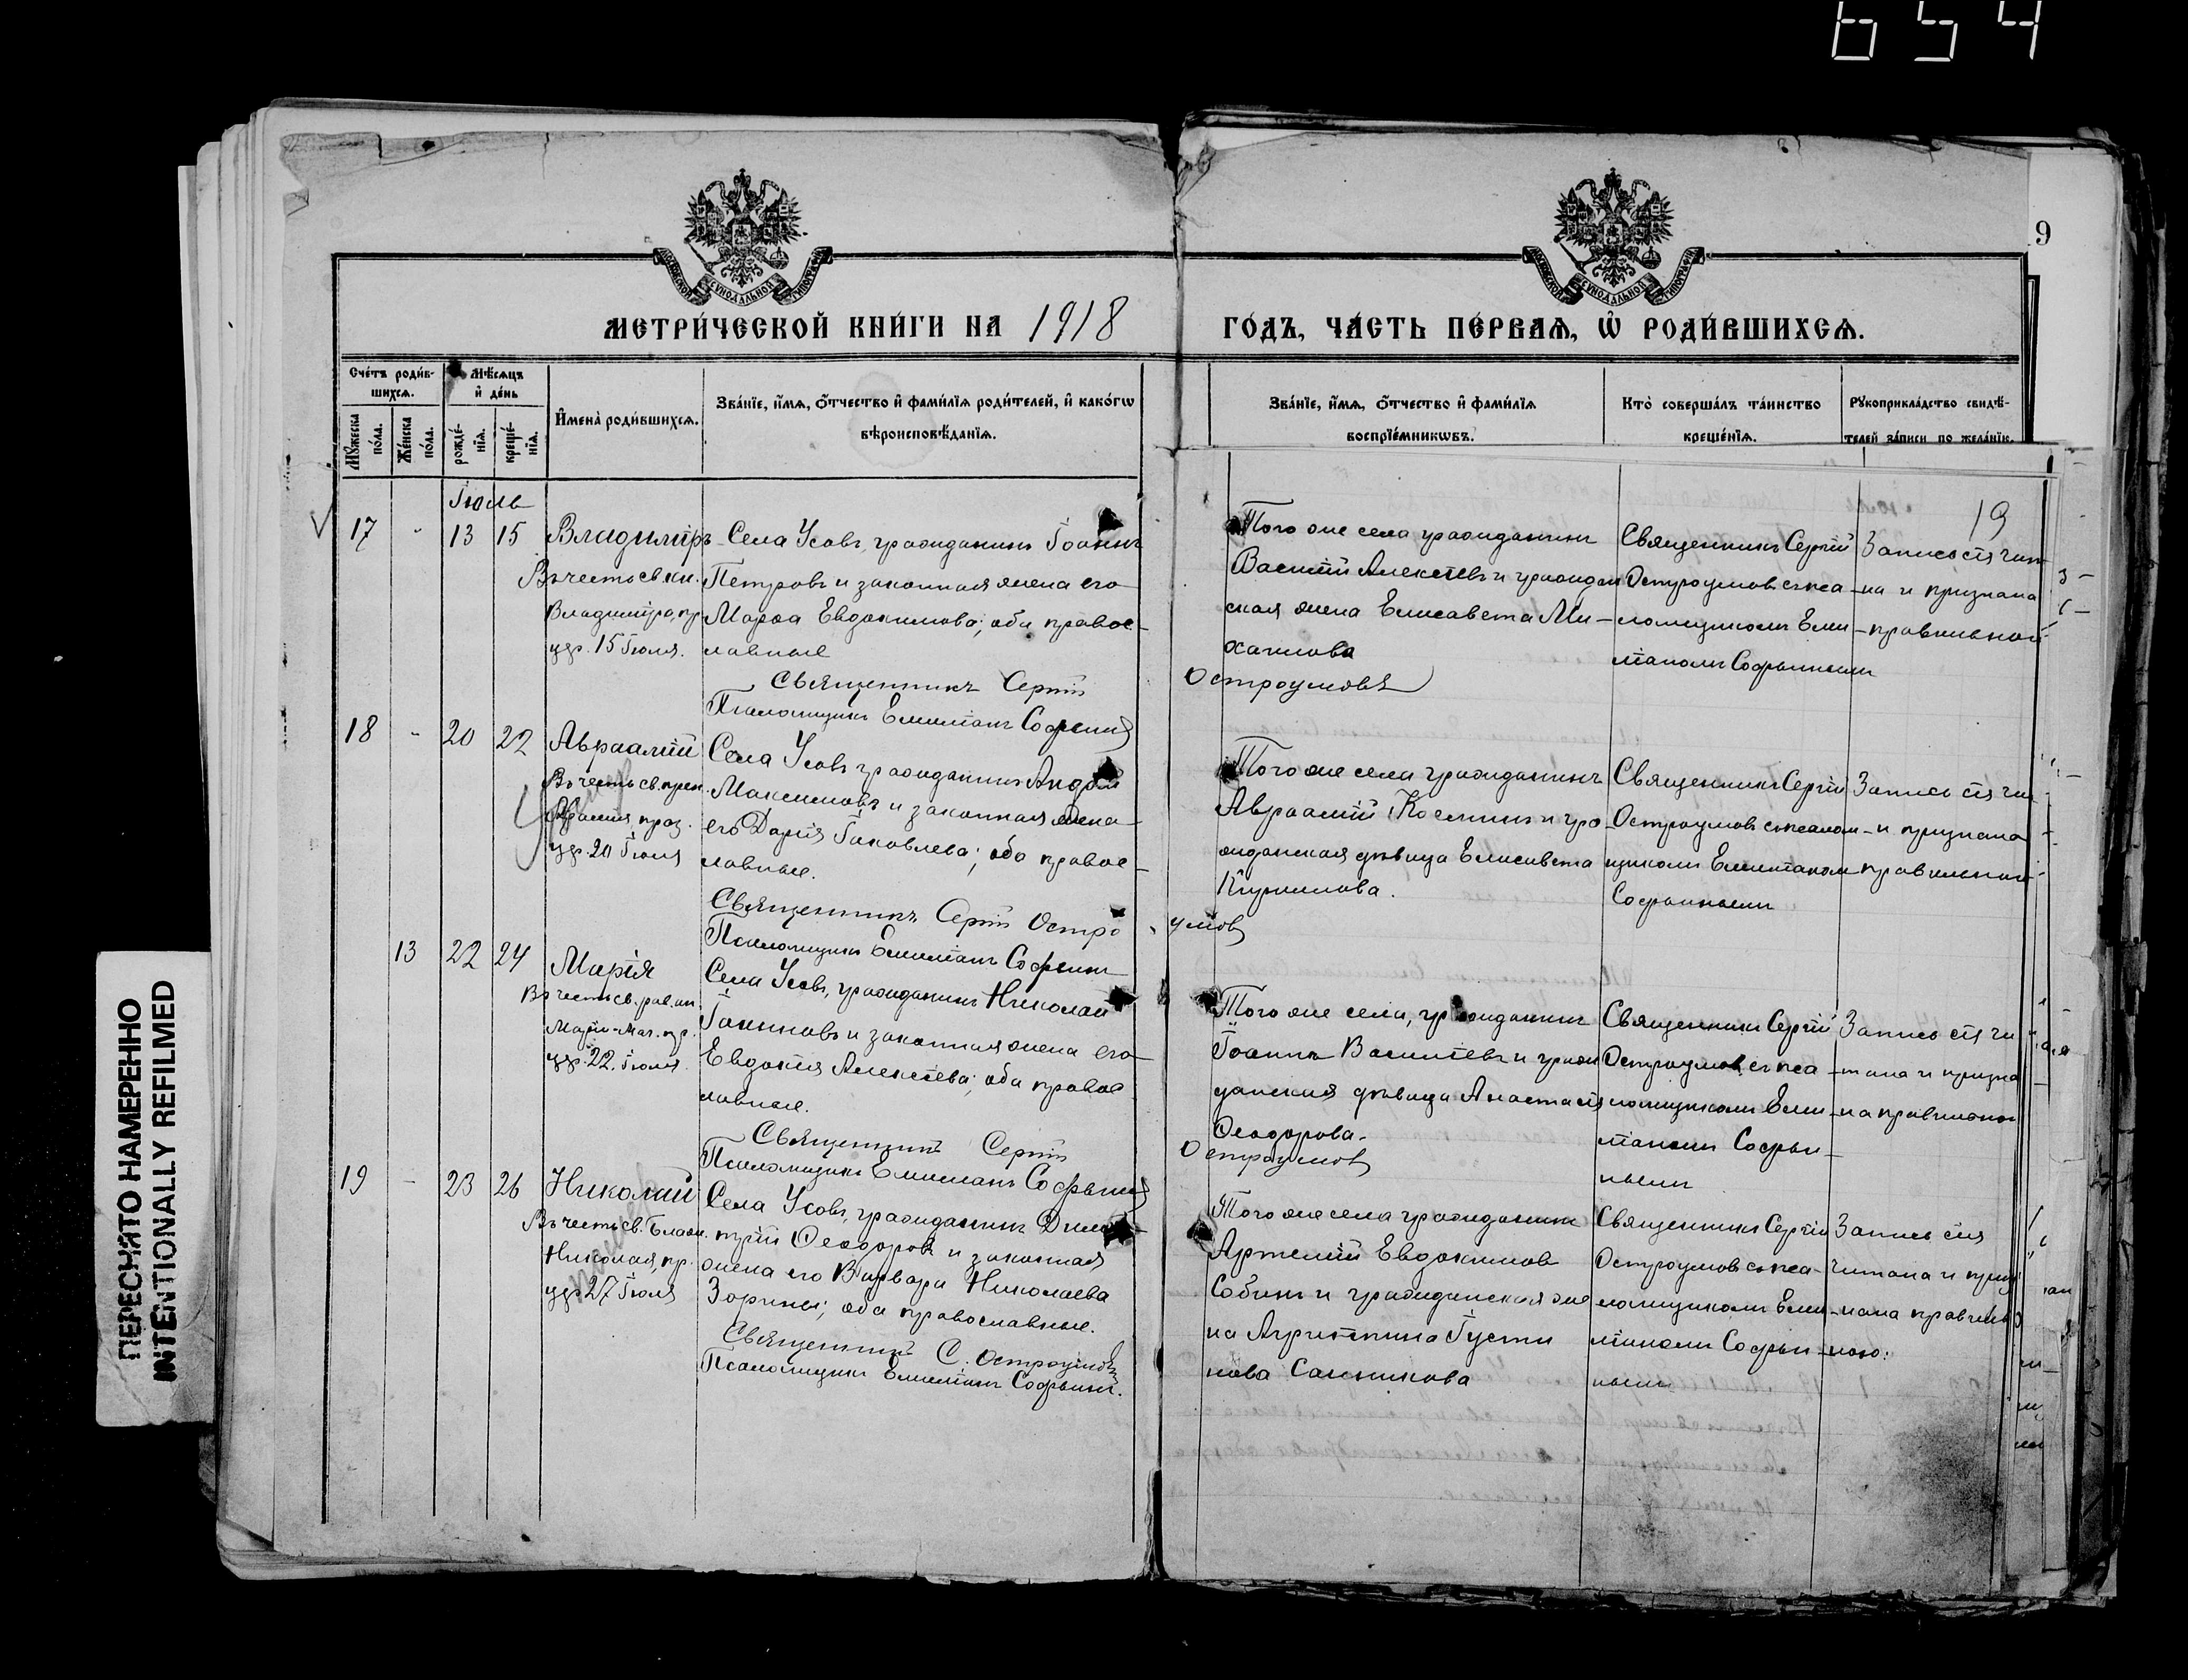 654
9
МЕТРИЧЕСКОЙ КНИГИ НА 1918
ГОДЪ, ЧАСТЬ ПЕРВАЯ, Ѡ РОДИВШИХСЯ.
Счетъ родив-
шихся.
Мужеска
пола.
Женска
пола.
Мѣсяцъ
и день
рожде-
нія.
креще-
нія.
Имена родившихся.
Званіе, имя, отчество и фамилія родителей, и какогѡ
вѣроисповѣданія.
Званіе, имя, отчество и фамилія
воспріемникѡвъ.
Кто совершалъ таинство
крещенія.
Рукоприкладство свидѣ-
телей записи по желанію.
19
Іюль
17 - 13 15
Владиміръ
Въ честь св. кн.
Владиміра, пр.
цер. 15 Іюля.
Села Усовъ, гражданинъ Іоаннъ
Петровъ и законная жена его
Марѳа Евдокимова; оба правос-
лавные
Священникъ Сергій
Остроумовъ
Псаломщикъ Емиліанъ Софьинъ
Того же села гражданинъ
Василій Алексѣевъ и граждан
ская жена Елисавета Ми-
хаилова
Священникъ Сергій
Остроумовъ съ пса-
ломщикомъ Еми-
ліаномъ Софьинымъ
Запись сія чит
на и признана
правильной
18 - 20 22
Авраамій
Въ честь св. преп.
Авраамія, праз.
цер. 20 Іюля
Села Усовъ гражданинъ Андрей
Максимовъ и законная жена
его Дарія Іаковлева; оба правос-
лавные.
Священникъ Сергій Остро
умов
Псаломщикъ Емиліанъ Софьинъ
Того же села гражданинъ
Авраамій Косминъ и гра-
жданская дѣвица Елисавета
Кириллова.
Священникъ Сергій
Остроумовъ съ псалом-
щикомъ Емиліаномъ
Софьинымъ
Запись сія чи
и признана
правильной
13 22 24
Марія
Въ честь св. рав. ап.
Маріи-Маг. пр.
цер. 22 Іюля.
Села Усовъ, гражданинъ Николай
Іоанновъ и законная жена его
Евдокія Алексѣева; оба правос
лавные.
Священникъ Сергій
Остроумов
Псаломщикъ Емиліанъ Софьинъ
Того же села, гражданинъ
Іоаннъ Василіевъ и граж
данская дѣвица Анастасія
Ѳеодорова.
Священникъ Сергій
Остроумовъ съ пса-
ломщикомъ Еми-
ліаномъ Софьи-
нымъ
Запись сія чи
тана и призна
на правильной
19 - 23 26
Николай
Въ честь св. Блаж.
Николая, пр.
цер 27 Іюля
Села Усовъ, гражданинъ Дими
трій Ѳеодоровъ и законная
жена его Варвара Николаева
Зорины; оба православные.
Священникъ С. Остроумовъ
Псаломщикъ Емиліанъ Софьинъ.
Того же села гражданинъ
Артемій Евдокимовъ
Собинъ и гражданская же
на Агриппина Іусти
нова Санникова
Священникъ Сергій
Остроумовъ съ пса-
ломщикомъ Еми-
ліаномъ Софьи-
нымъ
Запись сія
читана и приз
нана правиль
ною.
ПЕРЕСНЯТО НАМЕРЕННО
INTENTIONALLY REFILMED